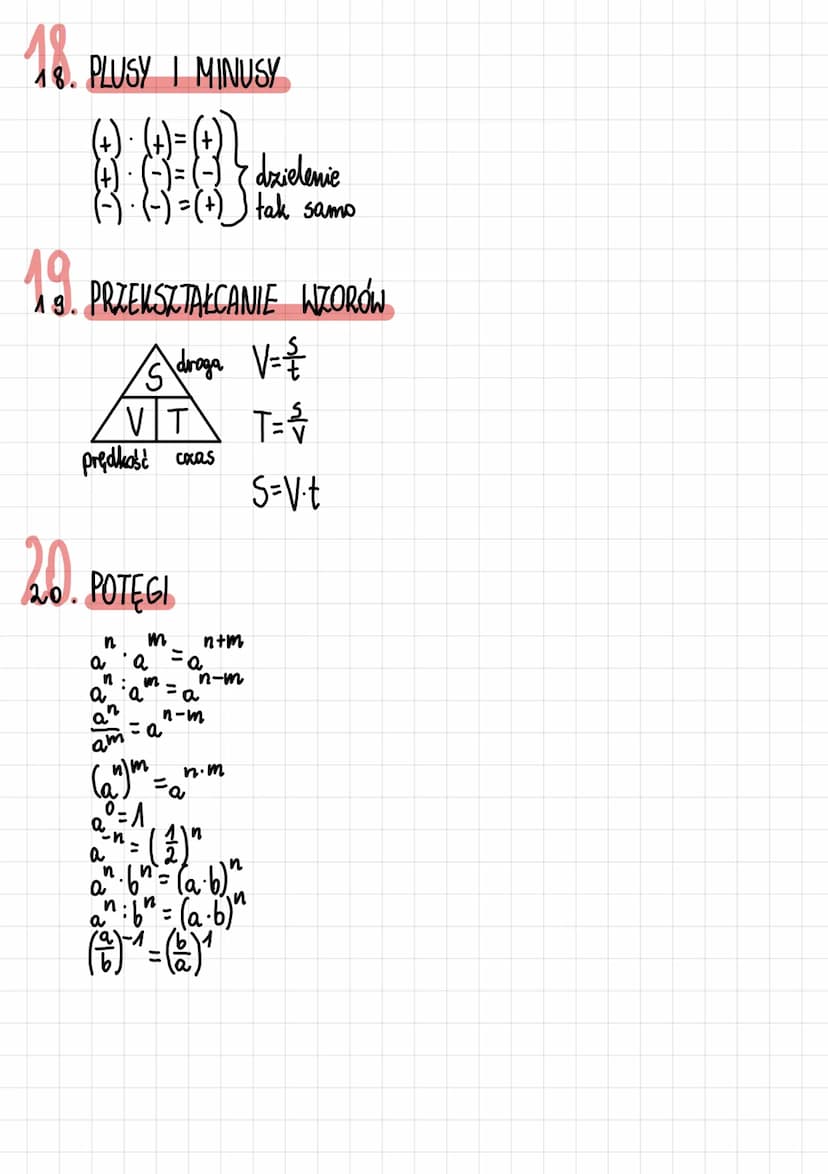 18.
18. PLUSY I MINUSY
(+) · (+) = (+)
(+) · (-) = (-)
(-) · (-) = (+)
dzielenie
tak samo
19
19. PRZEKSZTAŁCANIE WZORÓW
S droga
V T
prędkość czas
V = s/t
T = s/V
S = V·t
20.
20. POTĘGI
aⁿ · aᵐ = aⁿ⁺ᵐ
aⁿ : aᵐ = aⁿ⁻ᵐ
aⁿ/aᵐ = aⁿ⁻ᵐ
(aⁿ)ᵐ = aⁿ·ᵐ
a⁰ = 1
a⁻ⁿ = (1/2)ⁿ
aⁿ · bⁿ = (a·b)ⁿ
aⁿ : bⁿ = (a·b)ⁿ
(a/b)⁻¹ = (b/a)¹